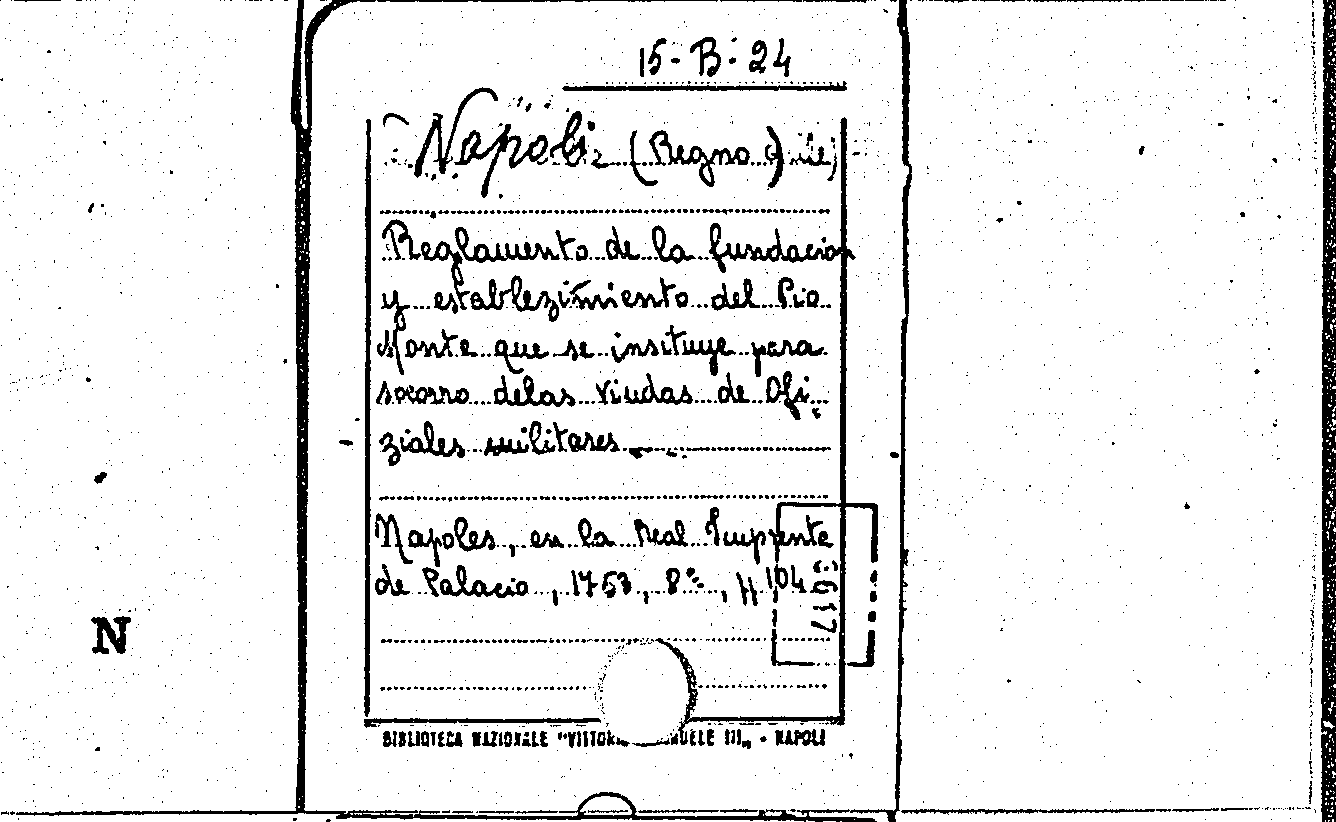 15-B-24
Napoli (Regno di)
Reglamento de la fundacion
y establezimiento del Pio
Monte que se insituye para
socorro delas viudas de Ofi
ziales militares
Napoles, en la Real Imprente
de Palacio, 1753, 8º, pp 104
3617
N
BIBLIOTECA NAZIONALE "VITTORIO EMANUELE III" - NAPOLI